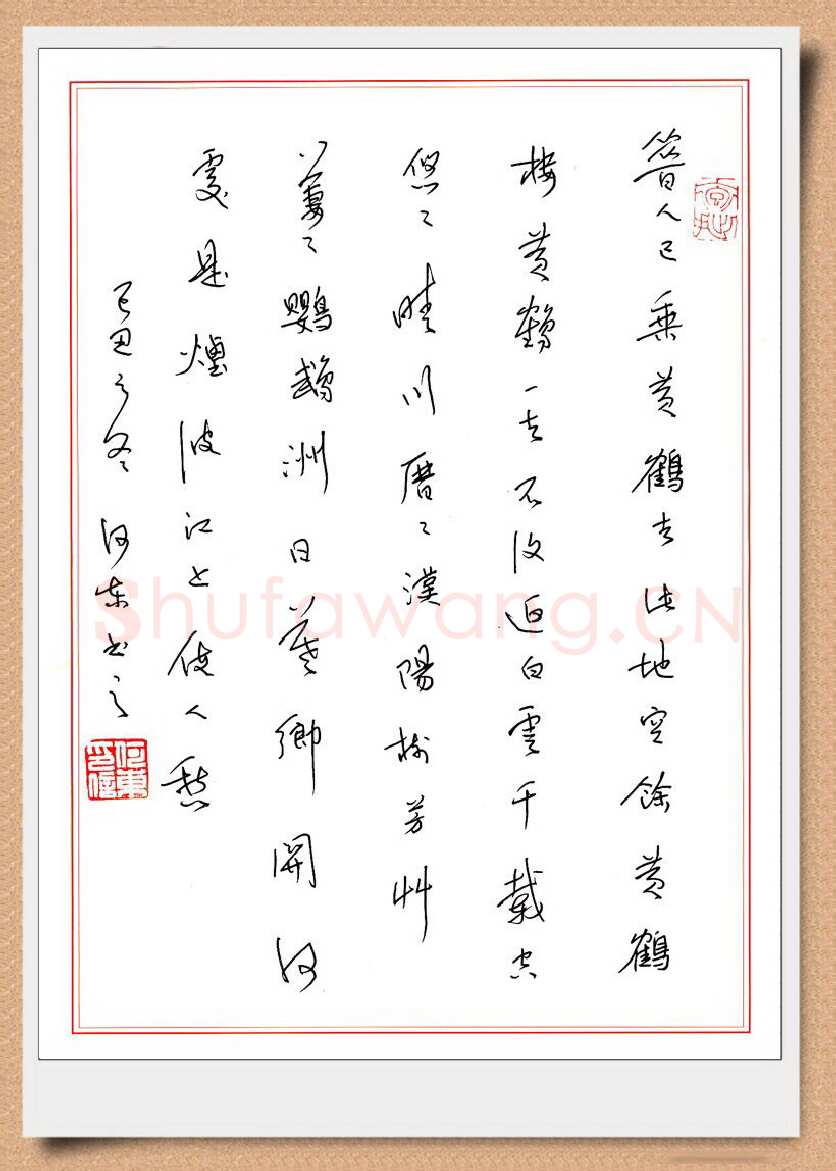 昔人已乘黄鶴去此地空餘黄鶴
樓黄鶴一去不復返白雲千載空
悠〻晴川曆〻漢陽樹芳艸
萋〻鸚鵡洲日暮鄉開何
處是煙波江上使人愁
己丑之冬 何東書之
何東印信
Shufawang.CN